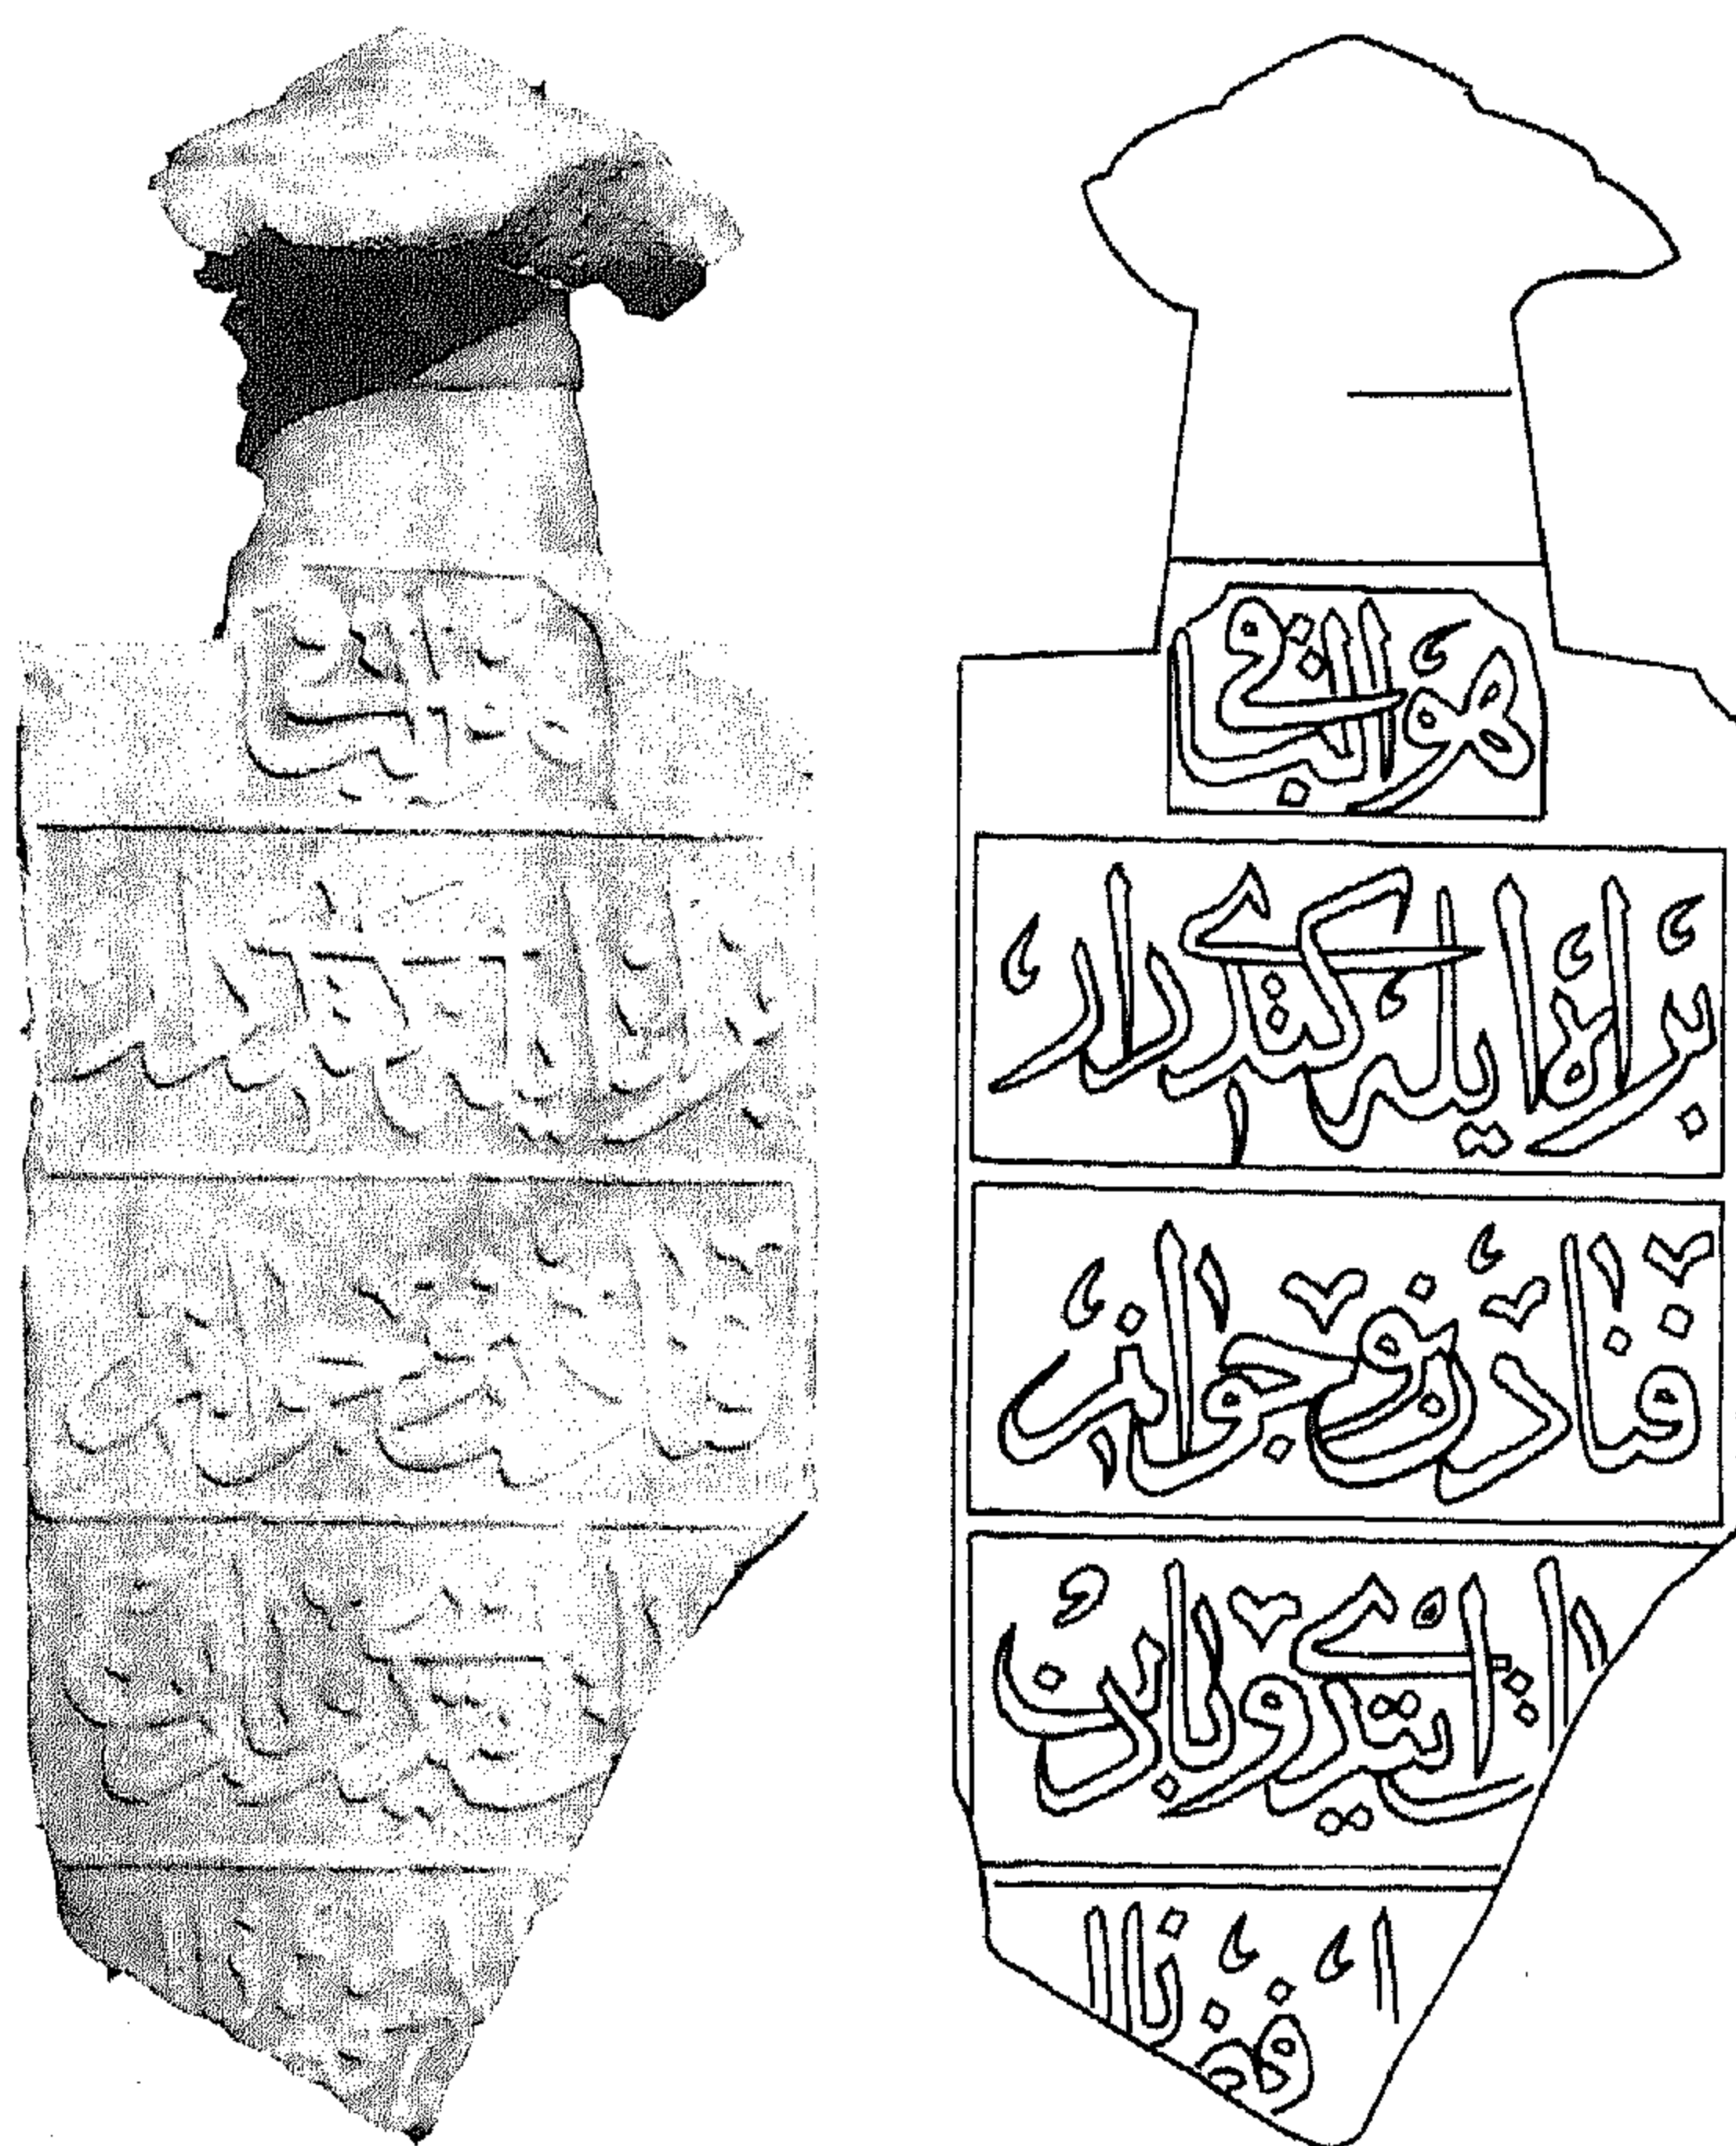 هو الباقى
بر اه ايله كتدى دار
فنادن نوجوان
ايتدى وبادن